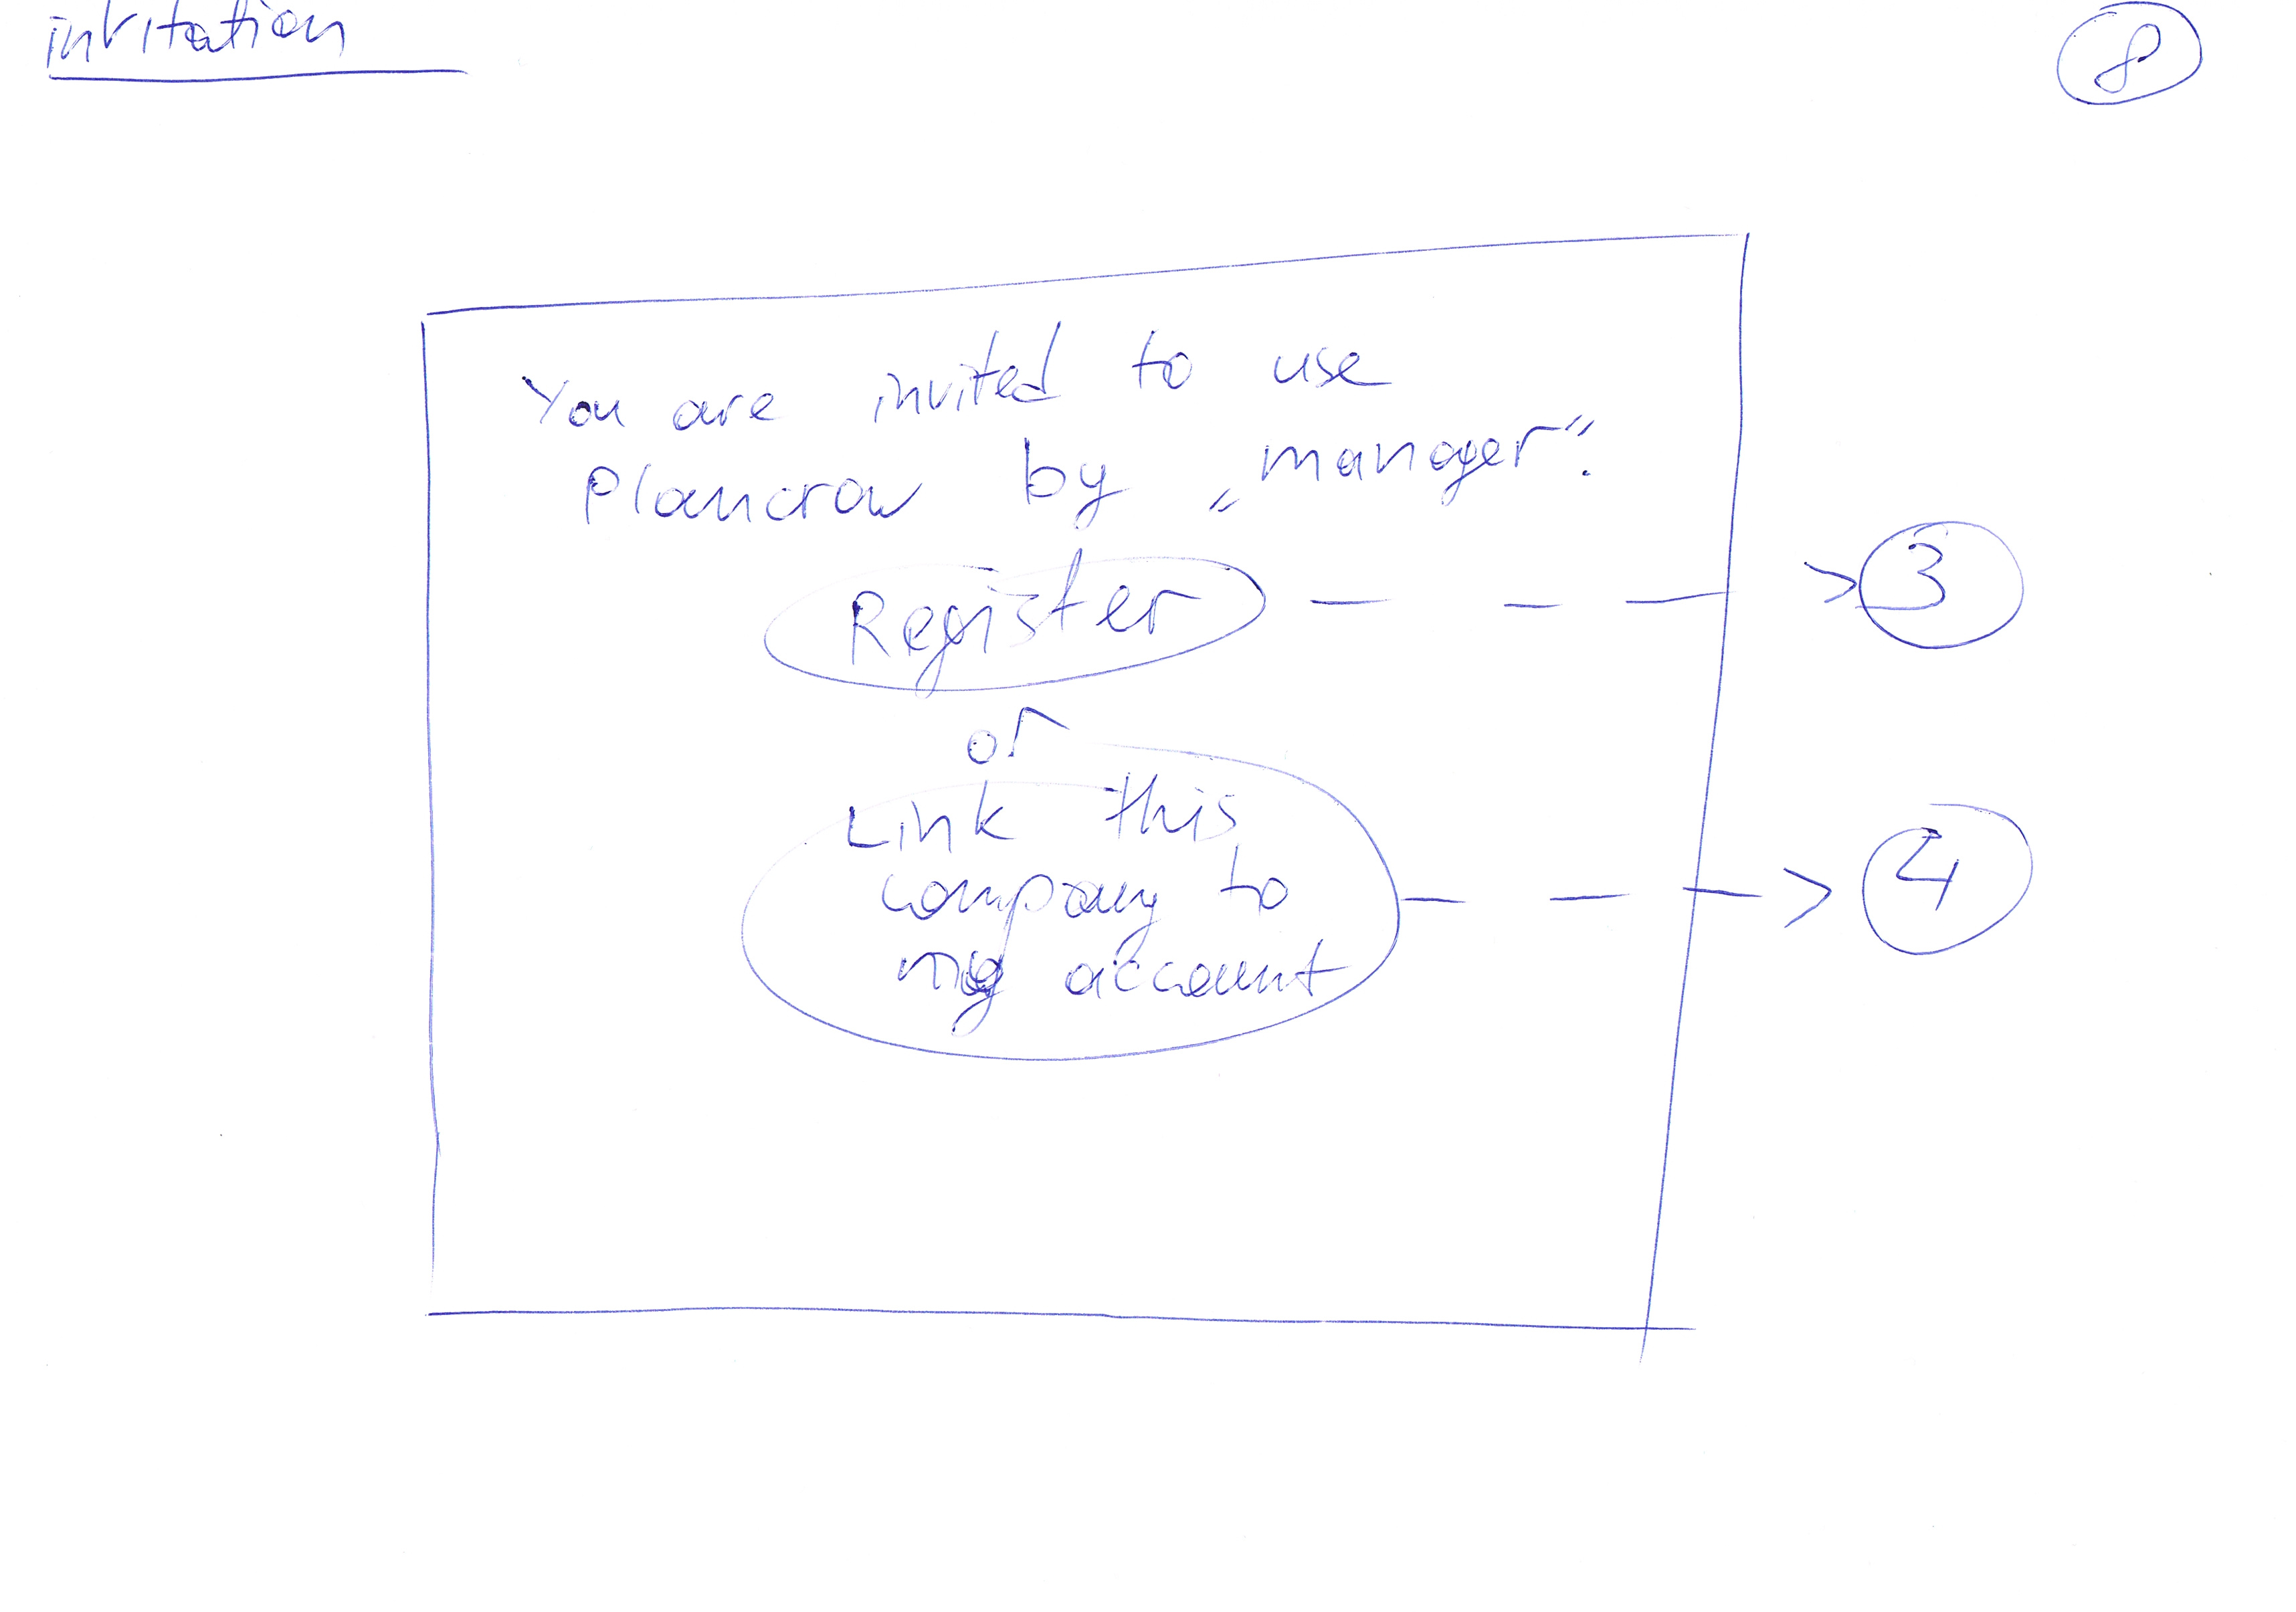 invitation
8
You are invited to use
plancrow by „manager“.
Register
3
or
Link this
company to
my account
4